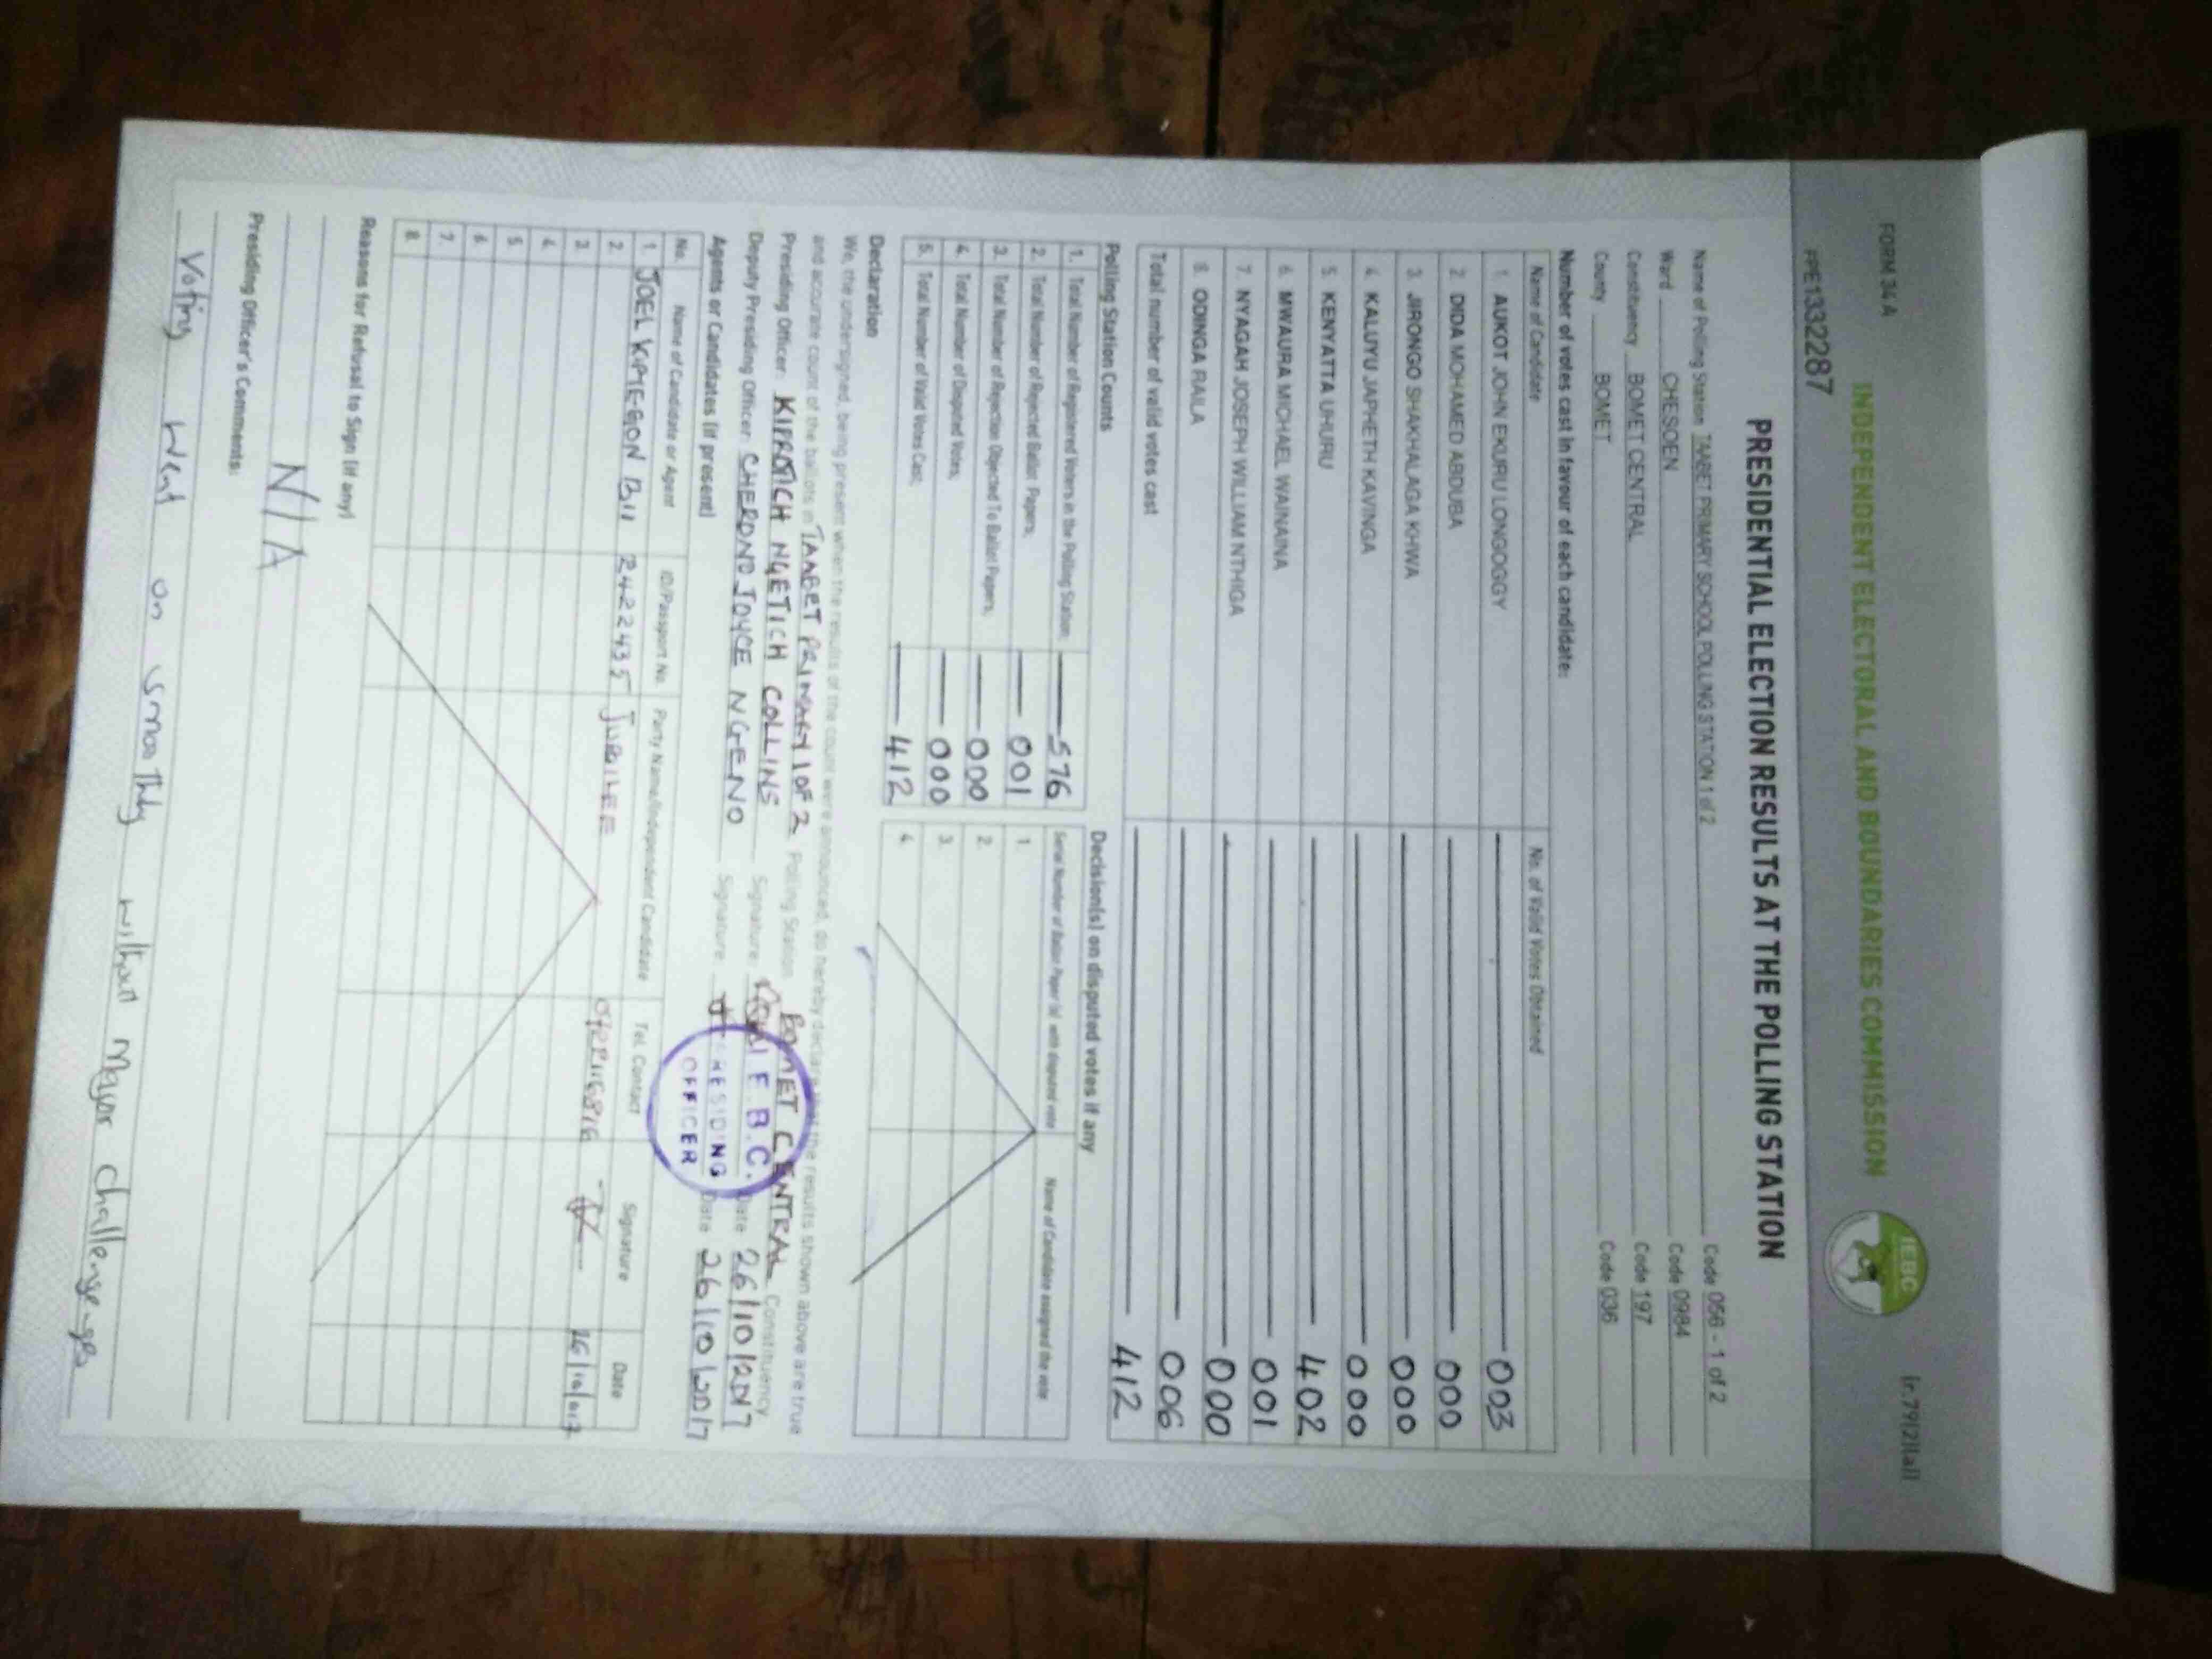 FORM 34A
(r.79(2)(a))
INDEPENDENT ELECTORAL AND BOUNDARIES COMMISSION
IEBC
PPE1332287
PRESIDENTIAL ELECTION RESULTS AT THE POLLING STATION
Name of Polling Station TAABET PRIMARY SCHOOL POLLING STATION 1 of 2 Code 056 - 1 of 2
Ward CHESOEN Code 0984
Constituency BOMET CENTRAL Code 197
County BOMET Code 036
Number of votes cast in favour of each candidate:
Name of Candidate No. of Valid Votes Obtained
1. AUKOT JOHN EKURU LONGOGGY 003
2. DIDA MOHAMED ABDUBA 000
3. JIRONGO SHAKHALAGA KHWA 000
4. KALUYU JAPHETH KAVINGA 000
5. KENYATTA UHURU 402
6. MWAURA MICHAEL WAINAINA 001
7. NYAGAH JOSEPH WILLIAM NTHIGA 000
8. ODINGA RAILA 006
Total number of valid votes cast 412
Polling Station Counts
1. Total Number of Registered Voters in the Polling Station 576
2. Total Number of Rejected Ballot Papers; 001
3. Total Number of Rejection Objected To Ballot Papers; 000
4. Total Number of Disputed Votes; 000
5. Total Number of Valid Votes Cast; 412
Decision(s) on disputed votes if any
Serial Number of Ballot Paper (s) with disputed vote Name of Candidate assigned the vote
1.
2.
3.
4.
Declaration
We, the undersigned, being present when the results of the count were announced, do hereby declare that the results shown above are true
and accurate count of the ballots in TAABET PRIMARY 1 OF 2 Polling Station BOMET CENTRAL Constituency
Presiding Officer: KIPROTICH NGETICH COLLINS Signature Date 26/10/2017
Deputy Presiding Officer: CHERONO JOYCE NGENO Signature Date 26/10/2017
I.E.B.C.
PRESIDING
OFFICER
Agents or Candidates (if present)
No. Name of Candidate or Agent ID/Passport No. Party Name/Independent Candidate Tel. Contact Signature Date
1. JOEL KIPIEGON Bii 2422435 JUBILEE 26/10/017
2.
3.
4.
5.
6.
7.
8.
Reasons for Refusal to Sign (if any)
N/A
Presiding Officer's Comments:
Voting went on smoothly without major challenge-ges